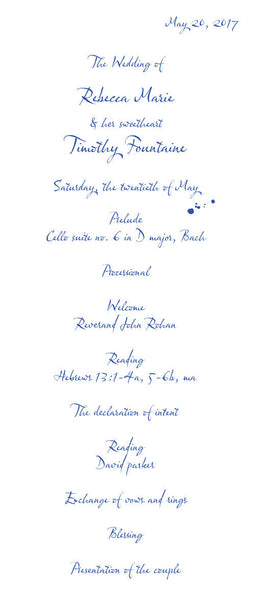 May 20, 2017
The Wedding of
Rebecca Marie
& her sweetheart
Timothy Fountaine
Saturday, the twentieth of May
Prelude
Cello suite no. 6 in D major, Bach
Processional
Welcome
Reverand John Rohan
Reading
Hebrews 13:1-4a, 5-6b, ma
The declaration of intent
Reading
David parker
Exchange of vows and rings
Blessing
Presentation of the couple